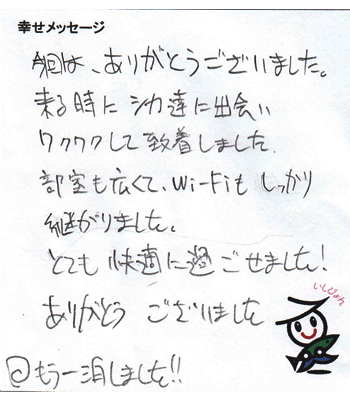 幸せメッセージ
今回は、ありがとうございました。
来る時にシカ達に出会い
ワクワクして致着しました
部室も広くて、Wi-Fiもしっかり
継がりました。
とても快適に過ごせました!
ありがとうございました
もう一泊しました!!